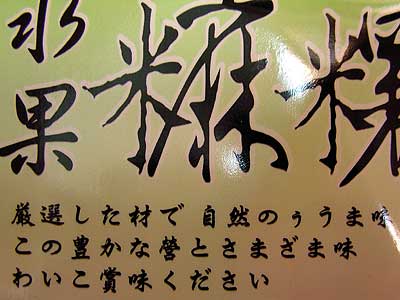 水果糍糬
厳選した材で 自然のぅうま味
この豊かな営とさまざま味
わいこ賞味ください